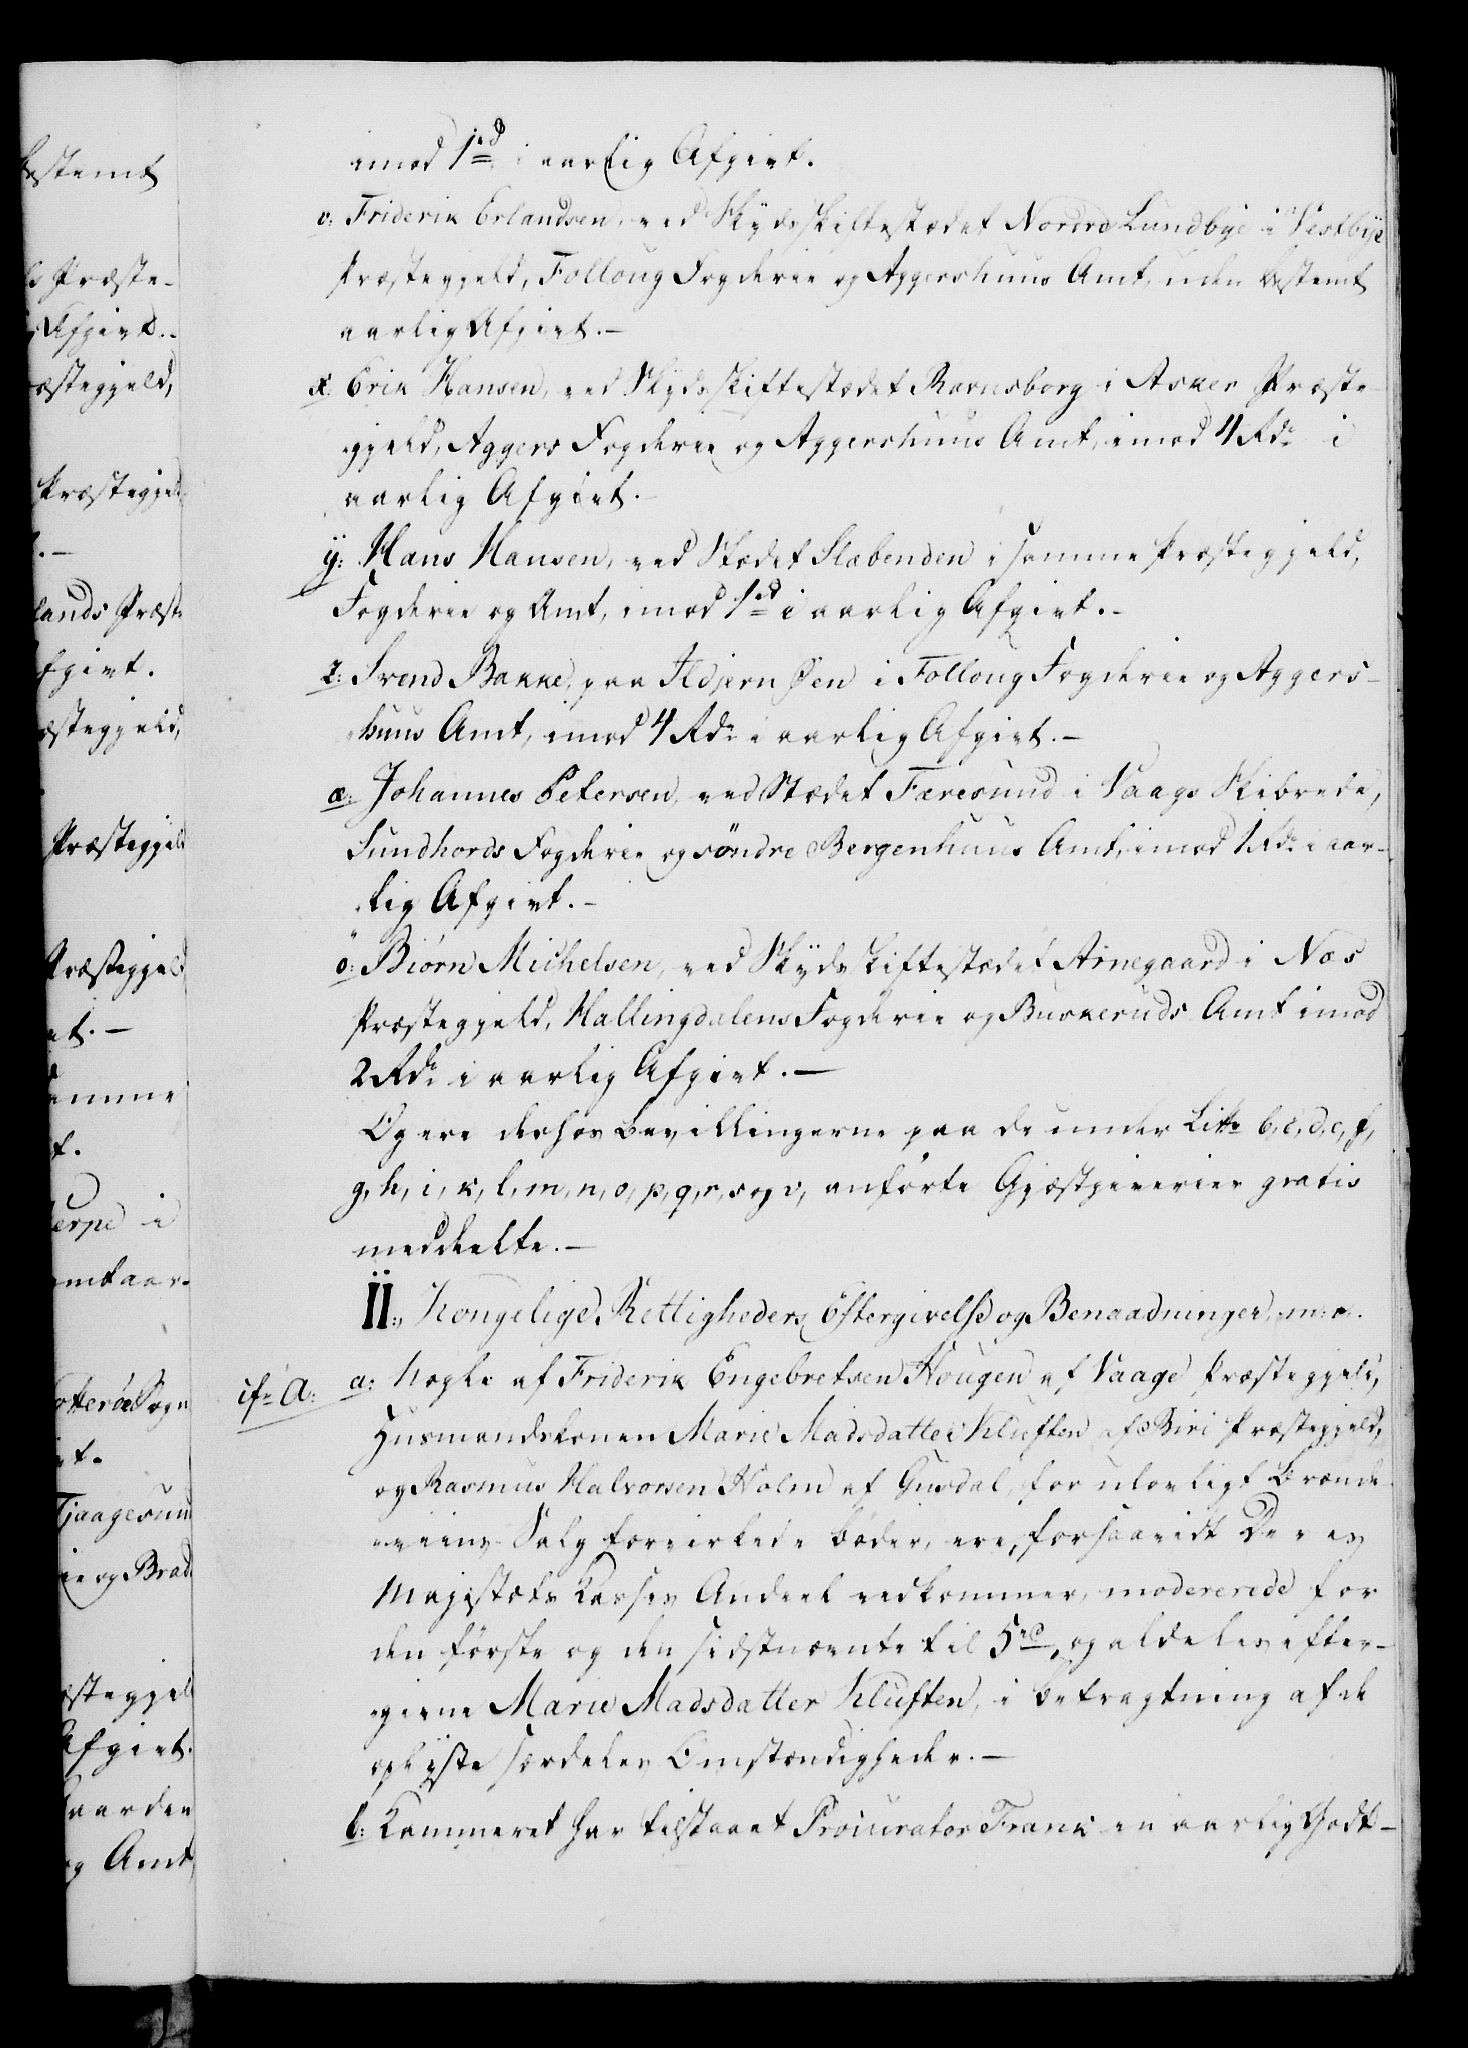 imod 1 rd i aarlig Afgivt.
v: Friderik Erlandsen, ved Skydsskiftestædet Nordre Lundbye i Vestbye
Præstegjeld, Folloug Fogderie og Aggershuus Amt, uden bestemt
aarlig Afgivt.—
x: Erik Hansen, ved Skydsskiftestædet Ravnsborg i Asker Præste-
gjeld, Aggers Fogderie og Aggershuus Amt, imod 4 Rdr i
aarlig Afgivt.—
ÿ: Hans Hansen, ved Stædet Slæbenden i samme Præstegjeld,
Fogderie og Amt, imod 1 rd i aarlig Afgivt.—
z: Svend Bakke, paa Ildjern Øen i Folloug Fogderie og Aggers-
huus Amt, imod 4 Rdr i aarlig Afgivt.—
æ: Johannes Petersen, ved Stædet Færesund i Vaags Skibrede,
Sundhords Fogderie og söndre Bergenhuus Amt, imod 1 Rdr i aar-
lig Afgivt.—
ö: Biørn Michelsen, ved Skydsskiftestædet Arnegaard i Næs
Præstegjeld, Hallingdalens Fogderie og Buskeruds Amt imod
2 Rdr i aarlig Afgivt.—
Og ere derhos Bevillingerne paa de under Littr b, c, d, e, f,
g, h, i, k, l, m, n, o, p, q, r, s og v, anførte Gjæstgiverier gratis
meddeelte.—
II., Kongelige Rettigheders Eftergivelse og Benaadninger, m: m.
cfr A: a: Nogle af Friderik Engebretsen Hougen af Vaage Præstegjeld,
Huusmandskonen Marie Madsdatter Kluften af Biri Præstegjeld,
og Rasmus Halvorsen Holm af Gusdal, for ulovligt Brænde-
viins Salg forvirkede Bøder, ere, forsaavidt Deres
Majestæts Kasses Andeel vedkommer, modererede for
den förste og den sidstnævnte til 5 rd, og aldeles efter-
givne Marie Madsdatter Kluften, i Betragtning af de
oplyste særdeles Omstændigheder.—
b: Kammeret har tilstaaet Procurator Frank en aarlig Godt-